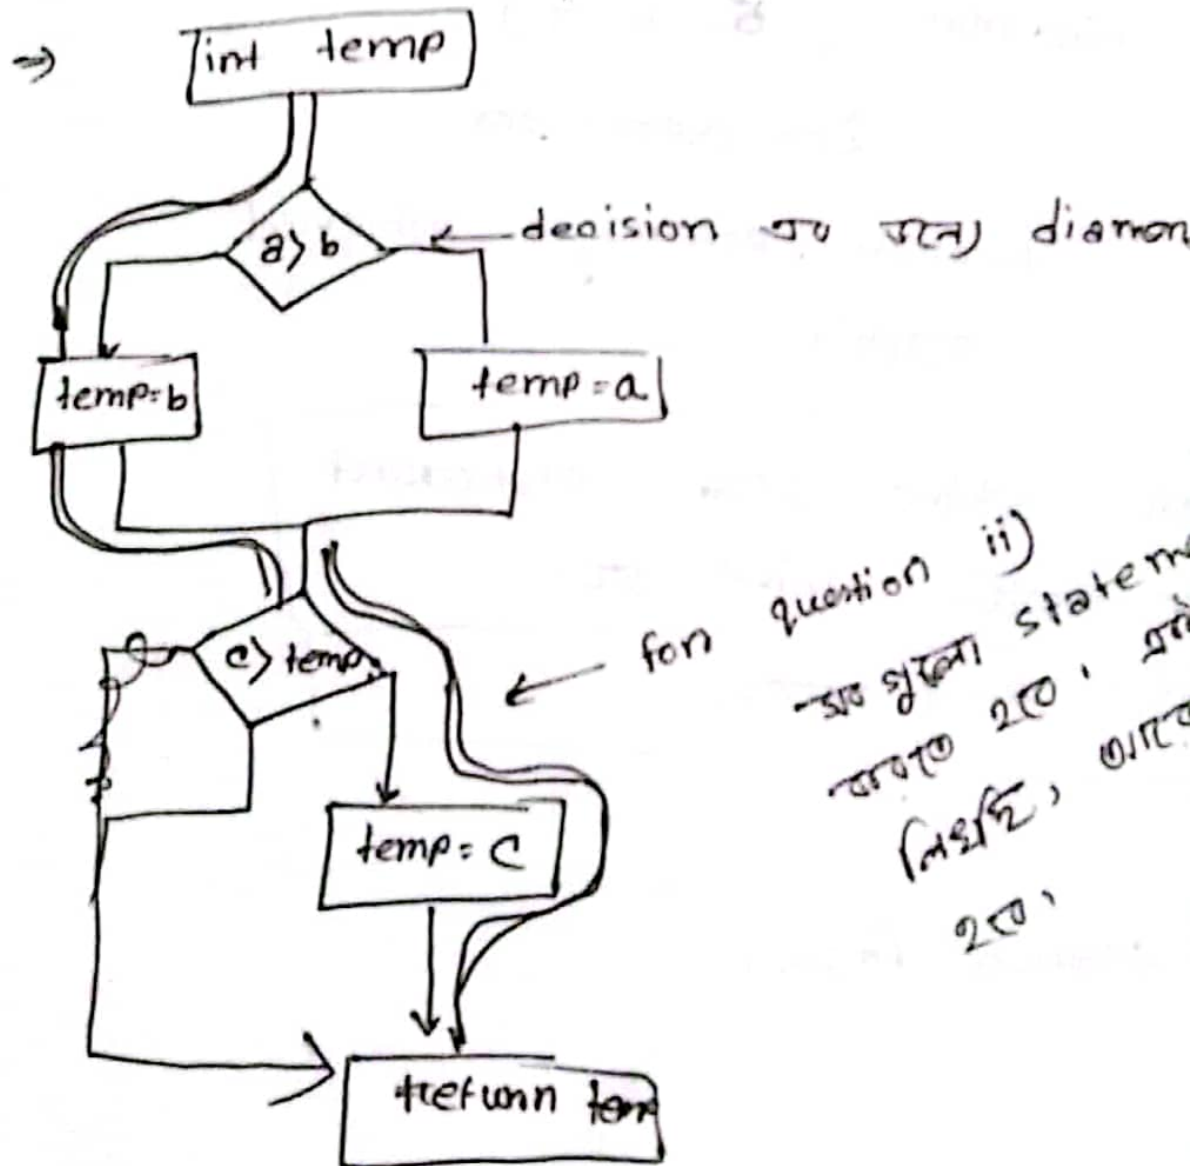 ⇒ int temp
a > b
← decision এর জন্যে diamon
temp = b
temp = a
for question ii)
সব গুলো statem
করতে হবে।
c > temp
লিখছি,
হবে।
temp = c
return tem